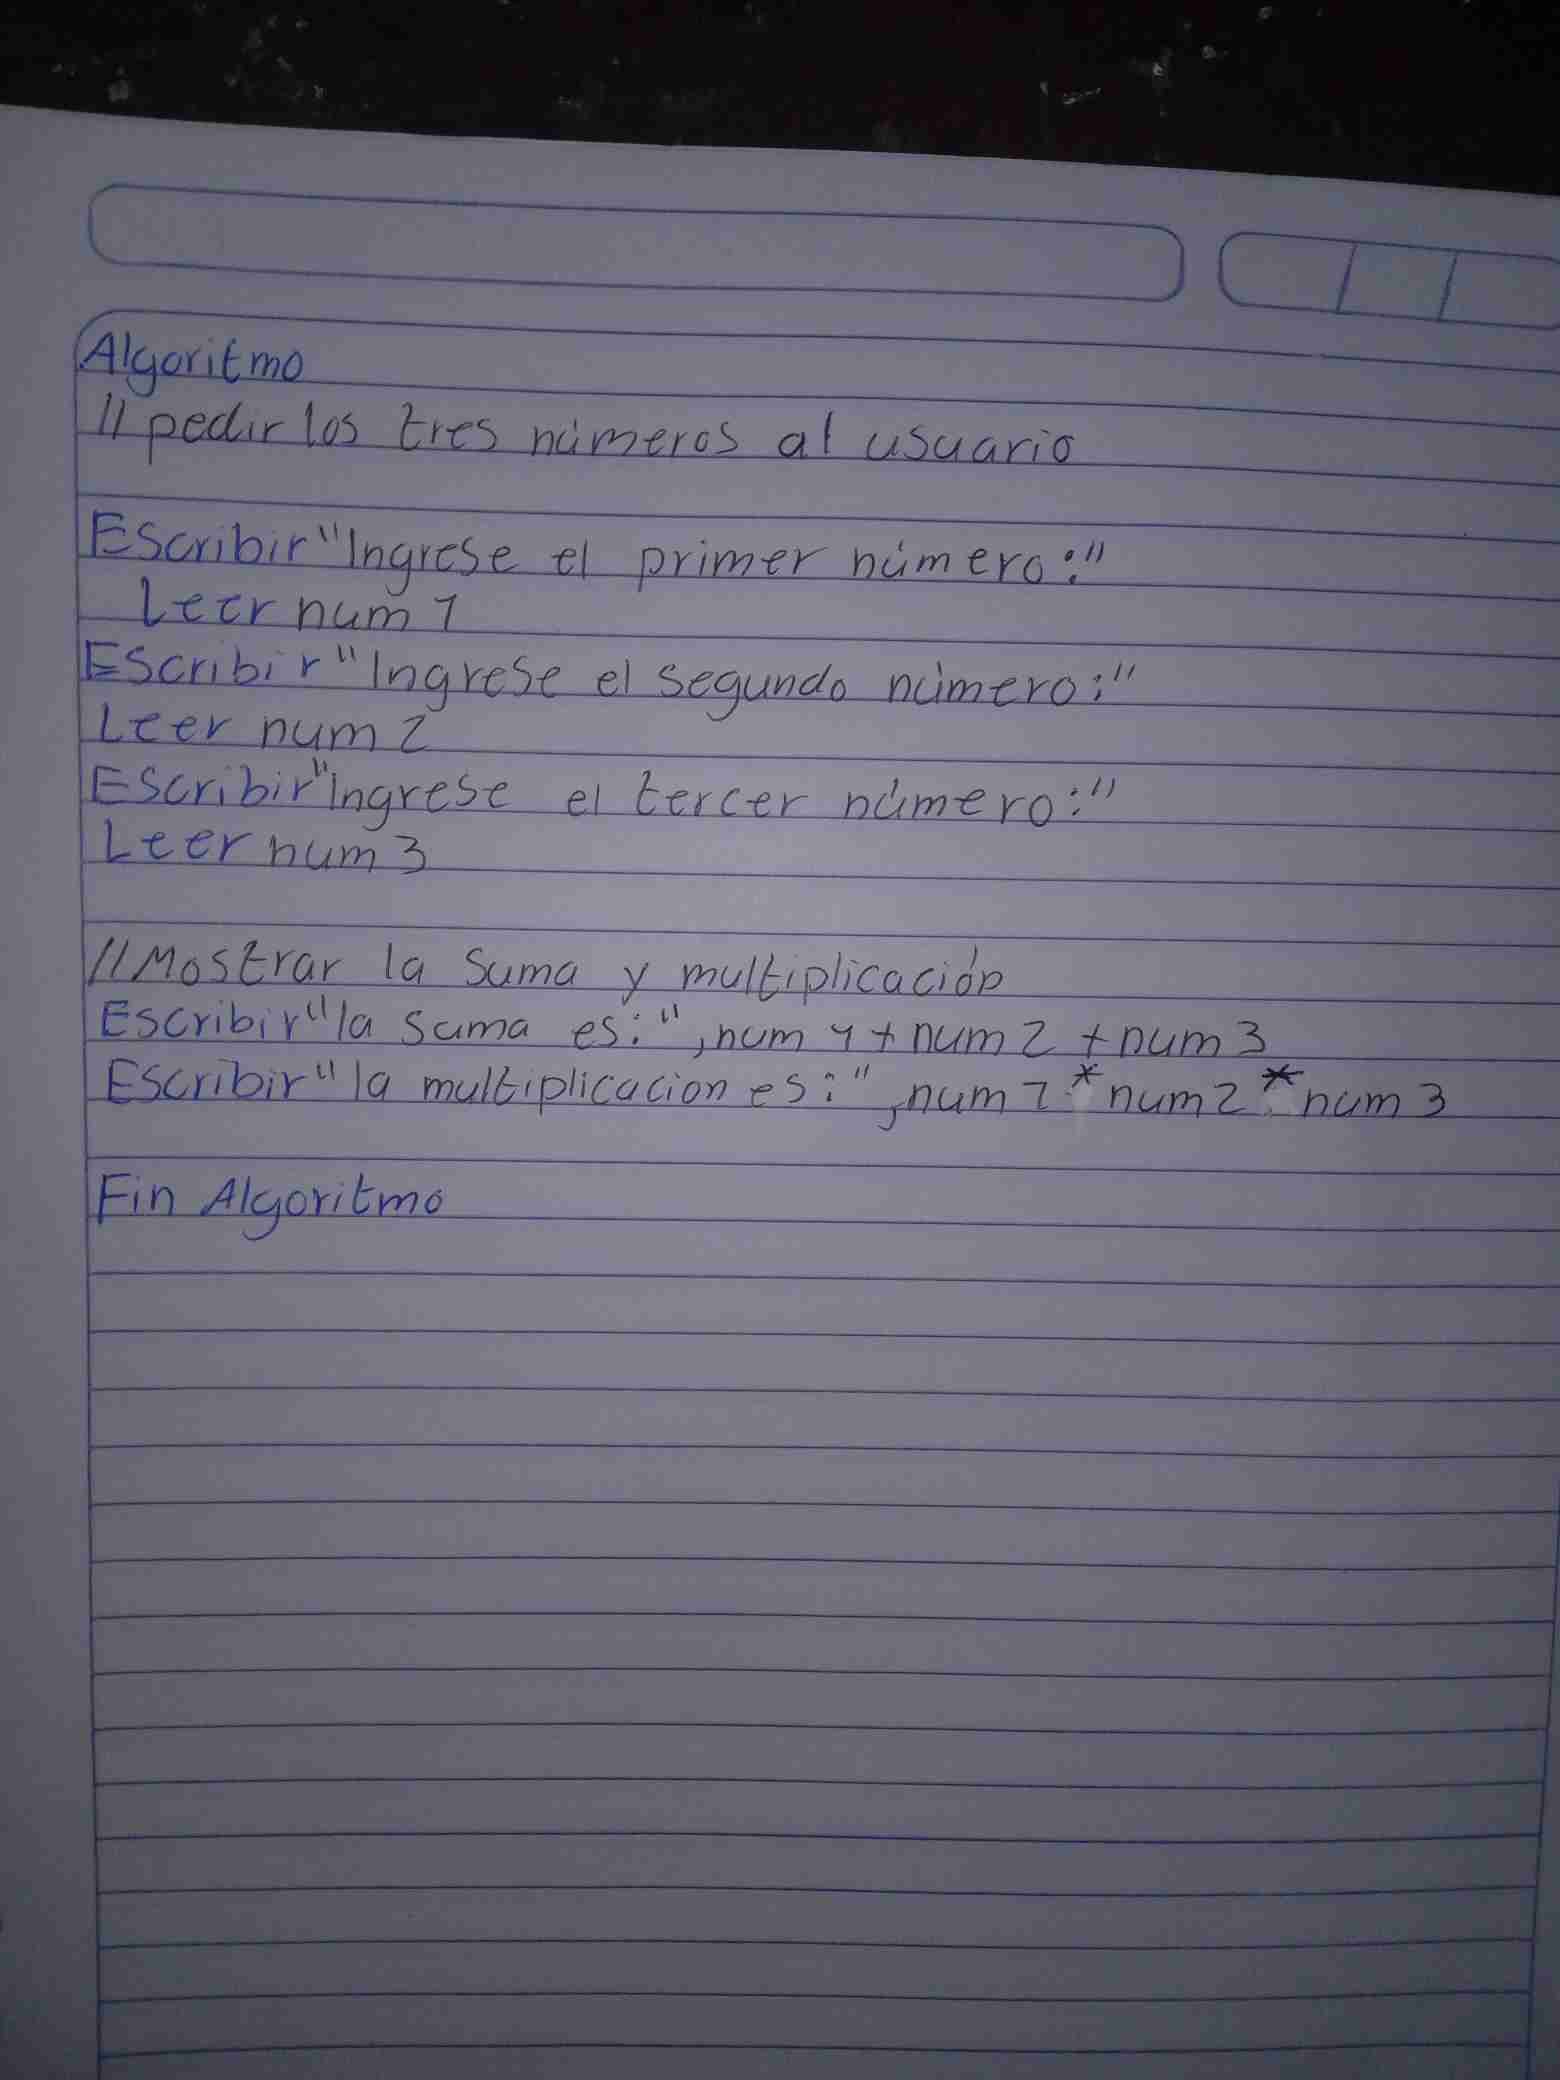 Algoritmo
// pedir los tres números al usuario
Escribir "Ingrese el primer número:"
Leer num 1
Escribir "Ingrese el segundo número:"
Leer num 2
Escribir "Ingrese el tercer número:"
Leer num 3
// Mostrar la suma y multiplicación
Escribir "la suma es:", num 1 + num 2 + num 3
Escribir "la multiplicacion es:", num 1 * num 2 * num 3
Fin Algoritmo